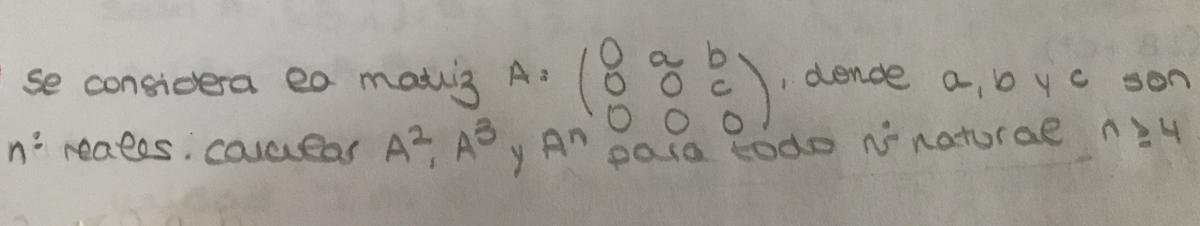 se considera la matriz A = (0 a b
0 0 c
0 0 0), donde a, b y c son
nº reales. calcular A², A³ y Aⁿ para todo nº natural n ≥ 4